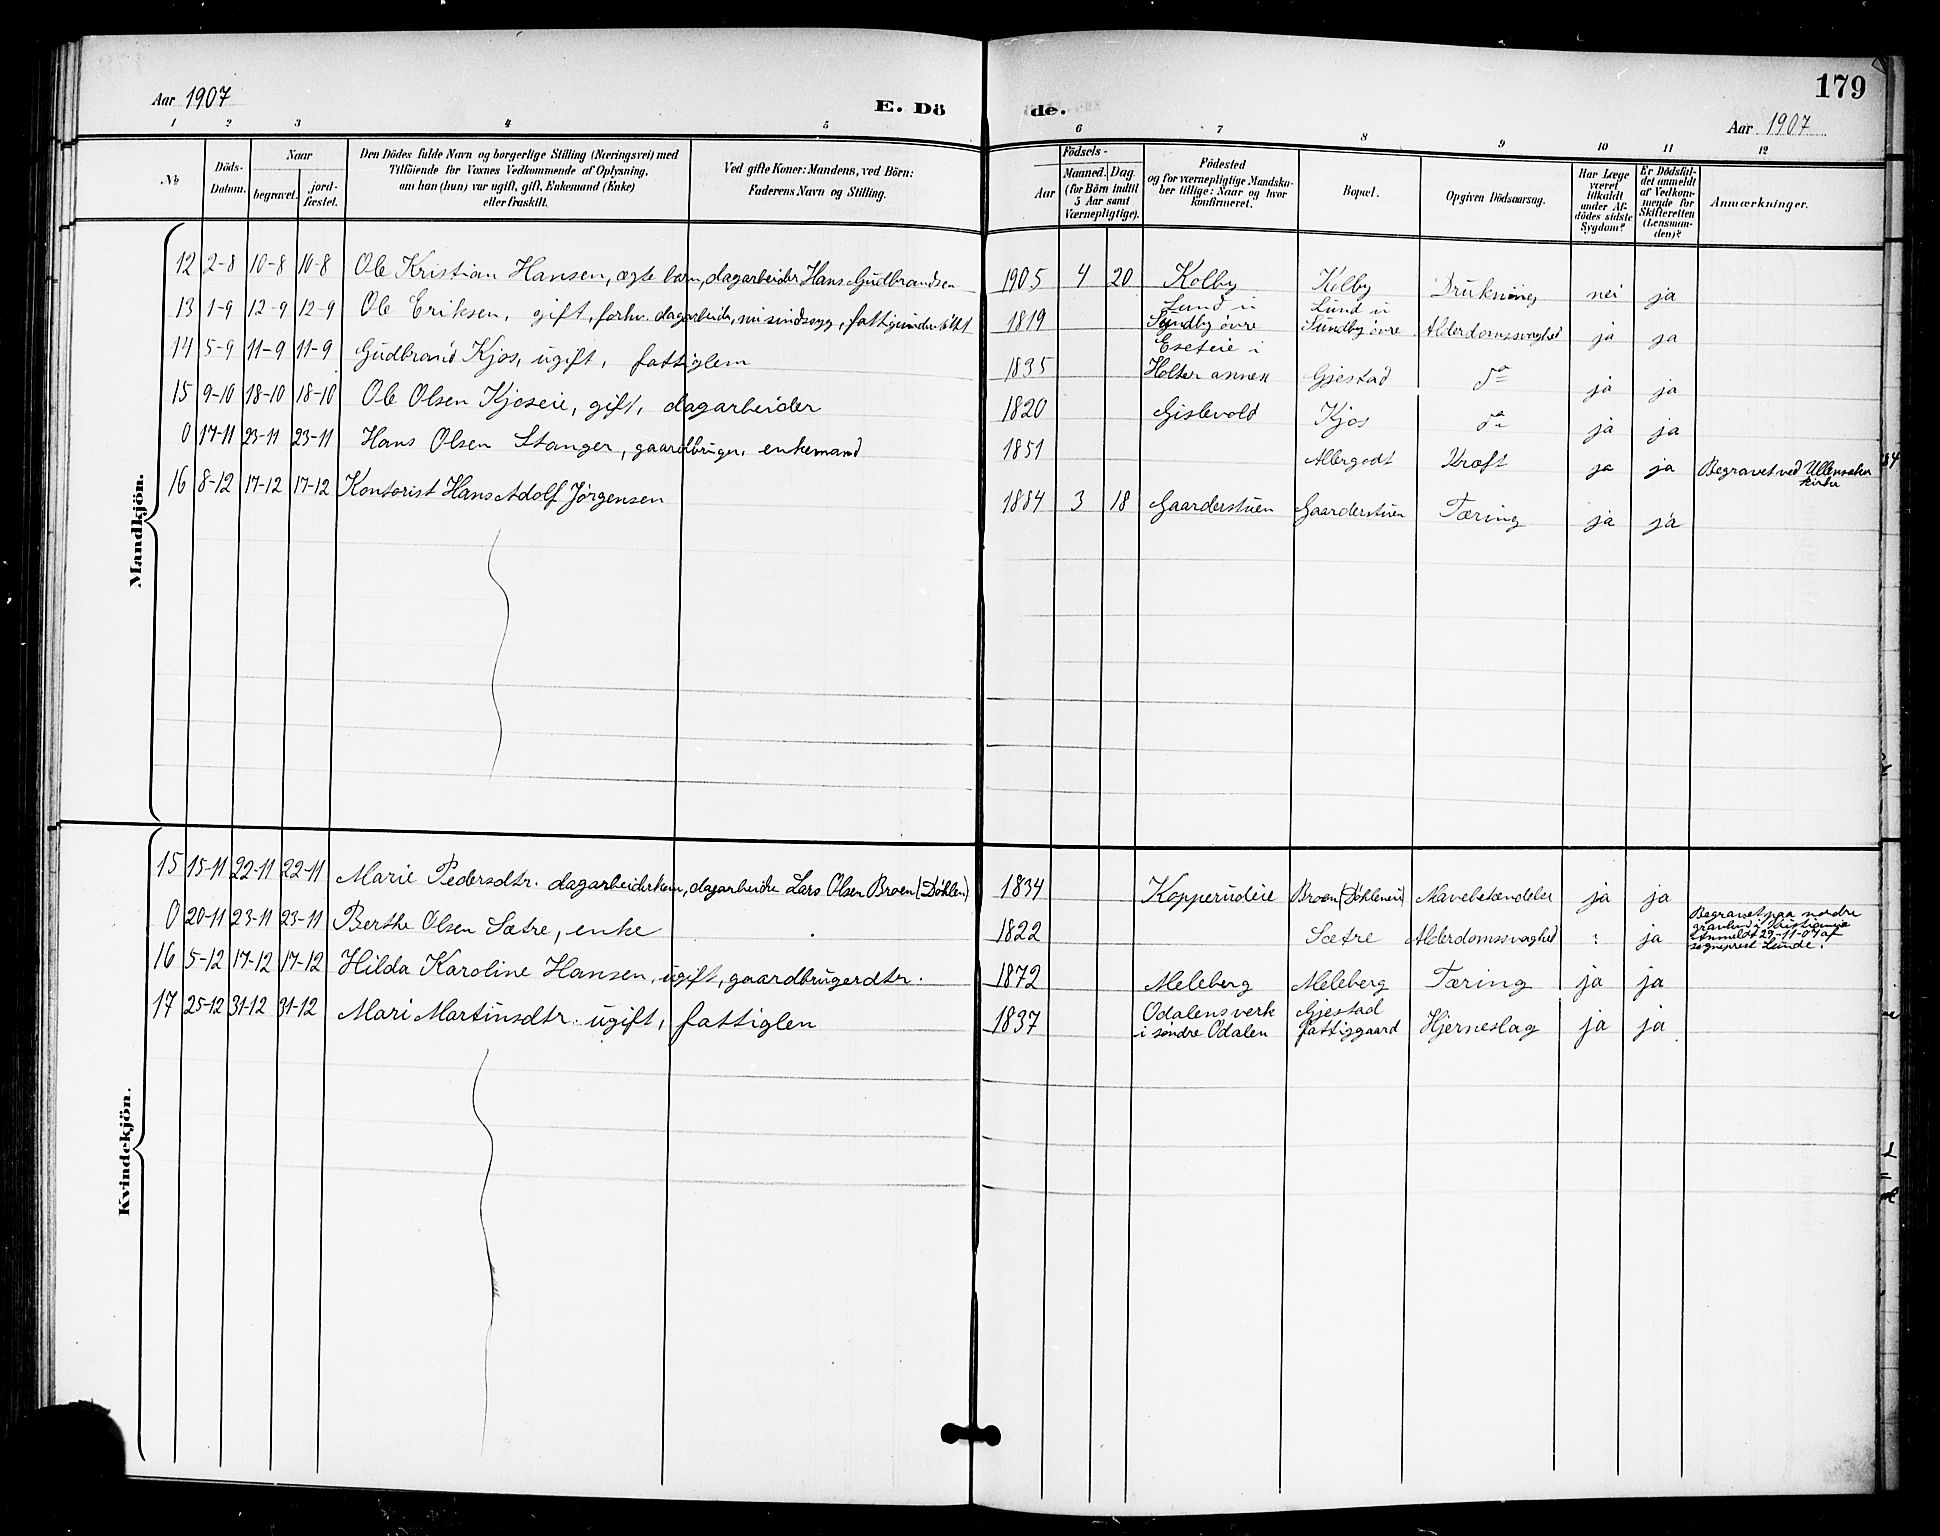 Aar 1907
E. Dö
de.
179
Aar 1907
1 2 3 4 5 6 7 8 9 10 11 12
No
Döds-Datum.
Naar
begravet.
jord-fæstet.
Den Dödes fulde Navn og borgerlige Stilling (Næringsvei) med
Tilföiende for Voxnes Vedkommende af Oplysning,
om han (hun) var ugift, gift, Enkemand (Enke)
eller fraskilt.
Ved gifte Koner: Mandens, ved Börn:
Faderens Navn og Stilling.
Födsels-
Aar
Maaned. Dag.
(for Börn indtil
5 Aar samt
Værnepligtige).
Födested
og for værnepligtige Mandska-
ber tillige: Naar og hvor
konfirmeret.
Bopæl.
Opgiven Dödsaarsag.
Har Læge
været
tilkaldt
under Af-
dödes sidste
Sygdom?
Er Dödsfal-
det anmeldt
af Vedkom-
mende for
Skifteretten
(Lensman-
den)?
Anmærkninger.
Mandkjön.
12 2-8 10-8 10-8 Ole Kristian Hansen, ægte barn, dagarbeider Hans Gudbrandsen 1905 4 20 Kolby Kolby Drukning nei ja
13 1-9 12-9 12-9 Ole Eriksen, gift, forhv. dagarbeider, nu sindssyg, fattigunderstøkt 1819 Lund u Sundby øvre Lund u Sundby øvre Alderdomssvaghed ja ja
14 5-9 11-9 11-9 Gudbrand Kjos, ugift, fattiglem 1835 Eseteie i Holter annex Gjestad do ja ja
15 9-10 18-10 18-10 Ole Olsen Kjoseie, gift, dagarbeider 1820 Gislevold Kjos do ja ja
0 17-11 23-11 23-11 Hans Olsen Stanger, gaardbruger, enkemand 1851 Albergodt Kræft ja ja Begravet ved Ullensaker
kirke
16 8-12 17-12 17-12 Kontorist Hans Adolf Jørgensen 1884 3 18 Gaarderstuen Gaarderstuen Tæring ja ja
Kvindekjön.
15 15-11 22-11 22-11 Marie Pedersdtr. dagarbeiderkone, dagarbeider Lars Olsen Broen (Døhlen) 1834 Kopperudeie Broen (Døhleneie) Mavebetændelse ja ja
0 20-11 23-11 23-11 Berthe Olsen Sætre, enke 1822 Sætre Alderdomssvaghed ? ja Begravet paa nordre
gravlund i Kristiania
Anmeldt 29-11-07 af
sogneprest Lunde.
16 5-12 17-12 17-12 Hilda Karoline Hansen, ugift, gaardbrugerdtr. 1872 Meleberg Meleberg Tæring ja ja
17 25-12 31-12 31-12 Mari Martinsdtr. ugift, fattiglem 1837 Odalens verk i søndre Odalen Gjestad fattiggaard Hjerneslag ja ja